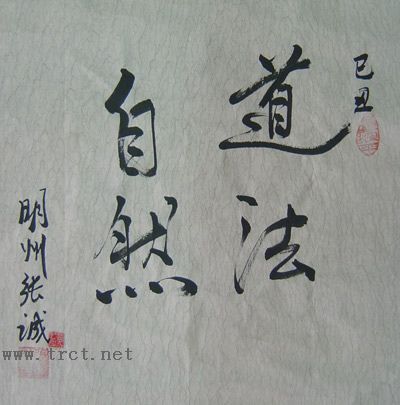 己丑
道法
自然
明州张诚
www.trct.net